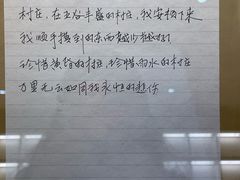 村庄，在五谷丰盛的村庄，我安顿下来
我顺手摸到的东西越少越好！
珍惜黄昏的村庄，珍惜雨水的村庄
万里无云如同我永恒的悲伤